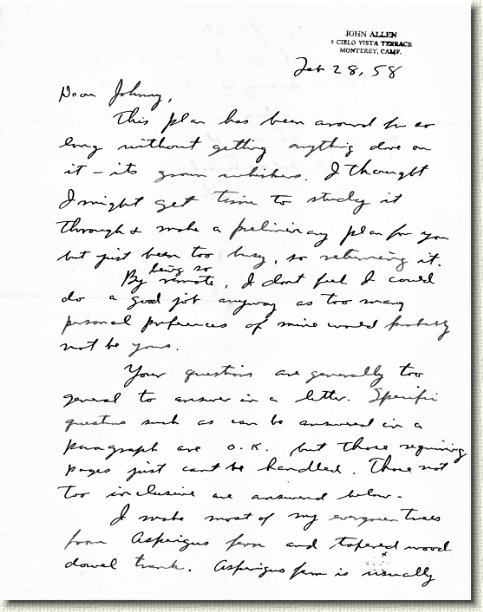 JOHN ALLEN
9 CIELO VISTA TERRACE
MONTEREY, CALIF.
Feb 28, 58
Dear Johnny,
This plan has been around for so
long without getting anything done on
it - its grown whiskers. I thought
I might get time to study it
through & make a preliminary plan for you
but just been too busy, so returning it.
being so
By remote, I dont feel I could
do a good job anyway as too many
personal preferences of mine would probably
not be yours.
Your questions are generally too
general to answer in a letter. Specific
questions such as can be answered in a
paragraph are O.K. but those requiring
pages just cant be handled. Those not
too inclusive are answered below.
I make most of my evergreen trees
from Asperigus fern and tapered wood
dowel trunk. Asperigus fern is usually